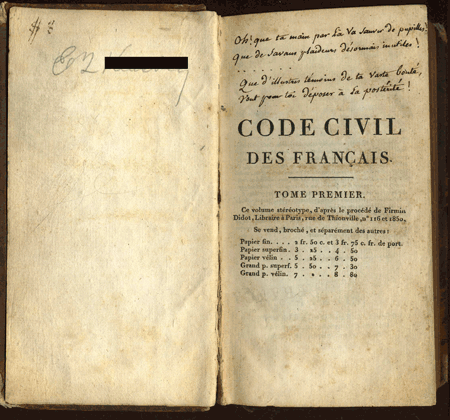 Oh! que ta main par là va sauver de pupilles!
Que de savans plaideurs désormais inutiles!
. . . . . .
Que d'illustres témoins de ta vaste bonté,
Vont pour toi déposer à la postérité!
CODE CIVIL
DES FRANÇAIS.
TOME PREMIER.
Ce volume stéréotype, d'après le procédé de Firmin
Didot, Libraire à Paris, rue de Thionville, nos 116 et 1850,
Se vend, broché, et séparément des autres:
Papier fin. . . . 2 fr. 50 c. et 3 fr. 75 c. fr. de port.
Papier superfin. 3 . 25 . . 4 . 50
Papier vélin . . 5 . 25 . . 6 . 50
Grand p. superf. 5 . 50 . . 7 . 30
Grand p. vélin. 7 . » . . 8 . 80